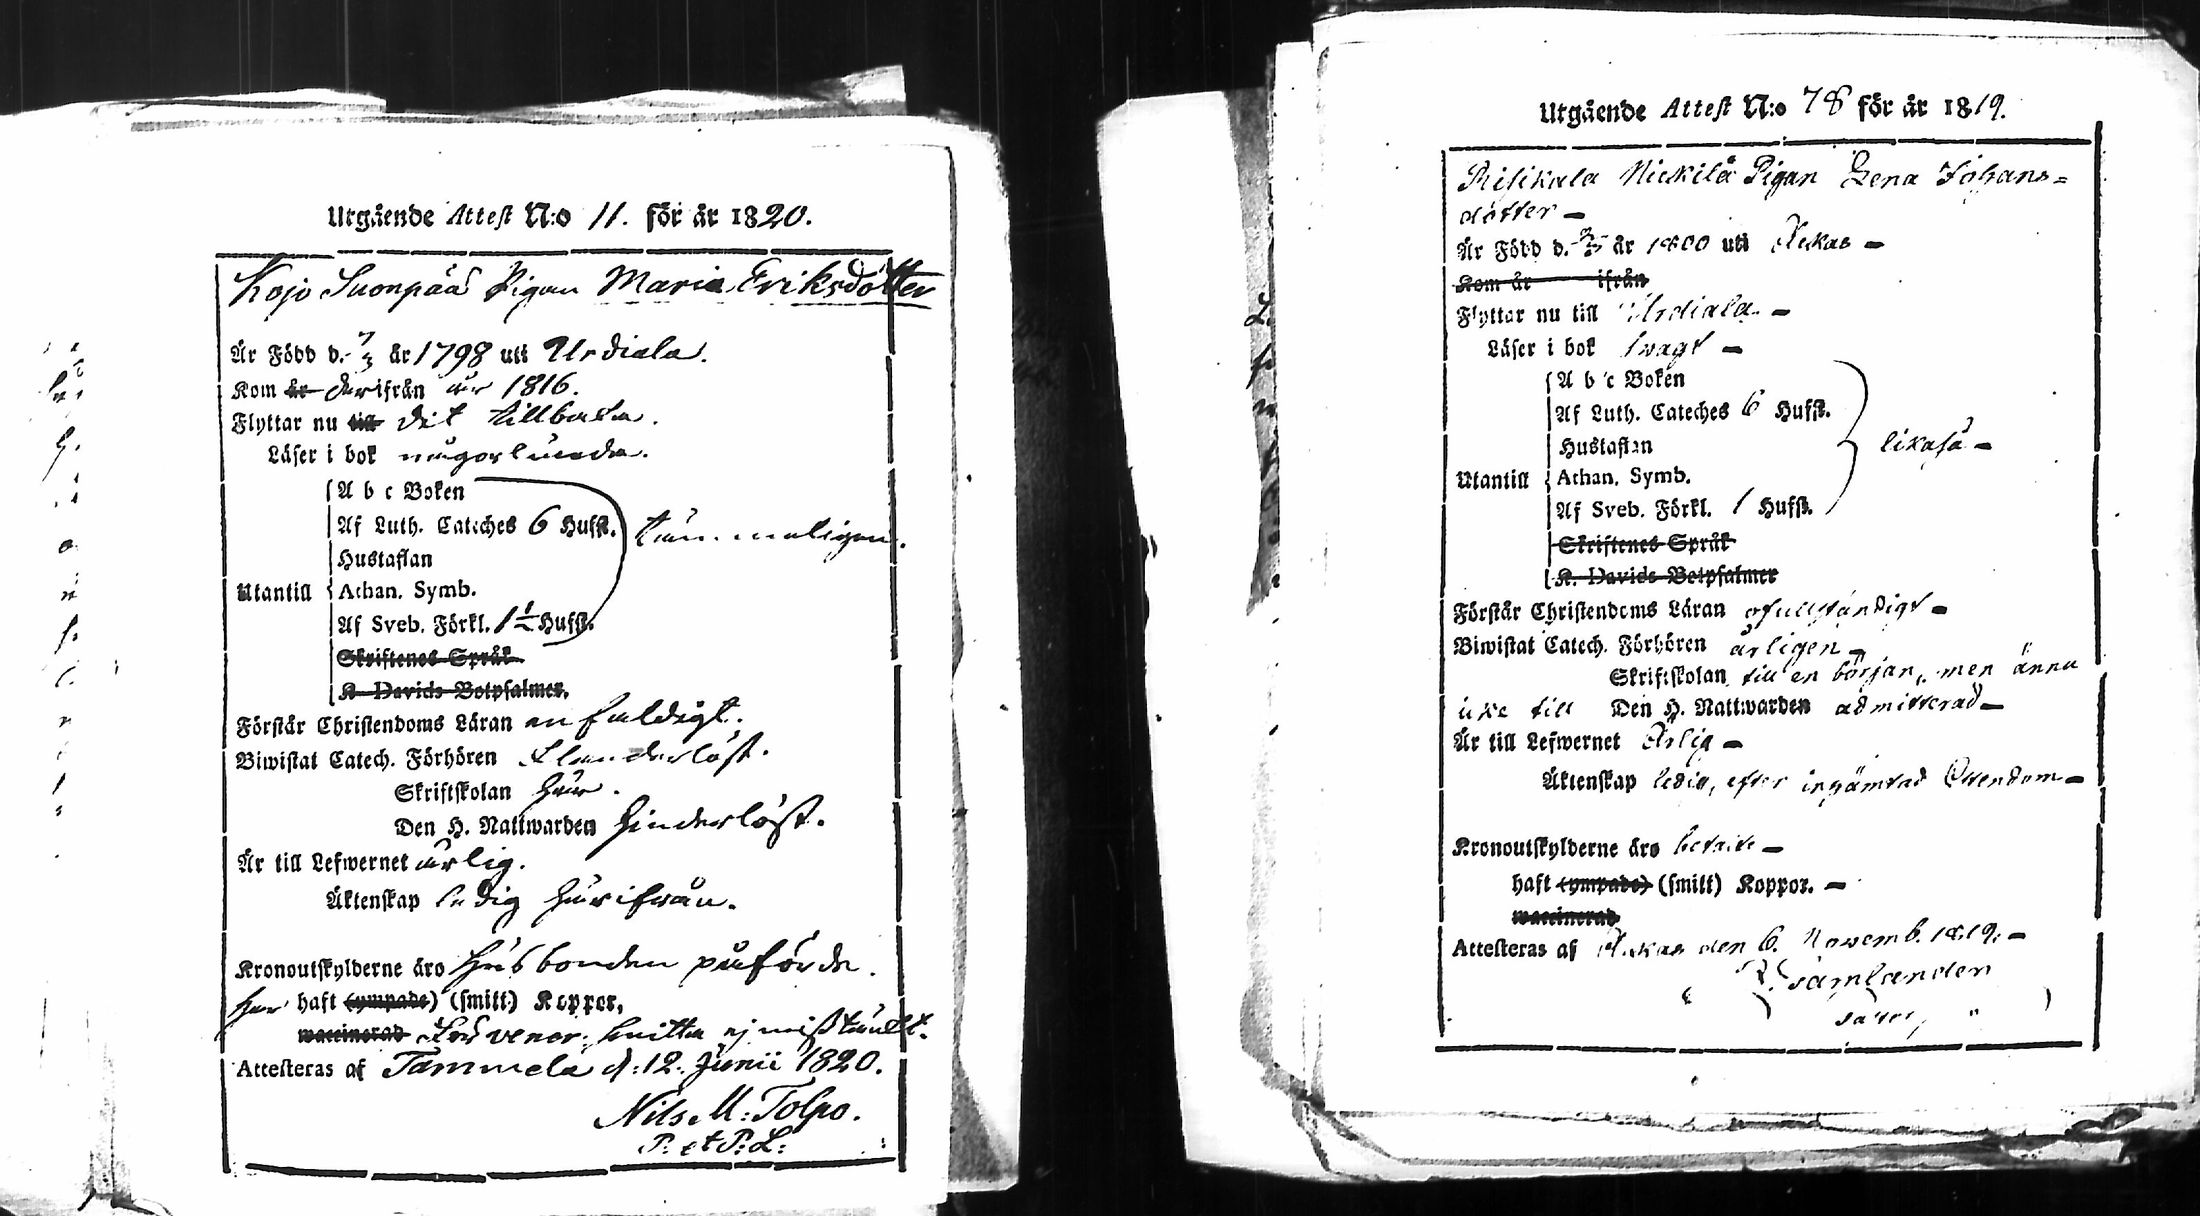 Utgående Attest N:o 11. för år 1820.
Kojo Suonpää Pigan Maria Eriksdotter
Är Född d. 7/3 år 1798 uti Urdiala.
Kom år derifrån år 1816.
Flyttar nu till dit tillbaka.
Läser i bok någorlunda.
A b c Boken
Af Luth. Cateches 6 Hufst. tämmeligen.
Hustaflan
Utantill Athan. Symb.
Af Sveb. Förkl. 1 1/2 Hufst.
Skriftenes Språk
K. Davids Botpsalmer.
Förstår Christendoms Läran enfaldigt.
Biwistat Catech. Förhören klanderlöst.
Skriftskolan här.
Den H. Nattwarden hinderlöst.
Är till Lefwernet ärlig.
Äktenskap ledig härifrån.
Kronoutskylderne äro husbonden påförde.
har haft (ympade) (smitt) Koppor,
waccinerad för vener. smitta ej mißtänkt.
Attesteras af Tammela d. 12. Junii 1820.
Nils M: Tolpo.
P. et P: L:
Utgående Attest N:o 78 för år 1819.
Nickilä Pigan Lena Johans=
dotter –
Är Född d. år 1800 uti Ackas –
Kom år ifrån
Flyttar nu till Urdiala –
Läser i bok swagt –
A b c Boken
Af Luth. Cateches 6 Hufst.
Hustaflan likaså –
Utantill Athan. Symb.
Af Sveb. Förkl. 1 Hufst.
Skriftenes Språk
K. Davids Botpsalmer
Förstår Christendoms Läran ofullständigt –
Biwistat Catech. Förhören årligen –
Skriftskolan till en början, men ännu
icke till Den H. Nattwarden admitterad –
Är till Lefwernet Ärlig –
Äktenskap ledig, efter inhämtad
Kronoutskylderne äro betalte –
haft (ympade) (smitt) Koppor. –
waccinerad
Attesteras af Ackas den 6. Novemb. 1819. –